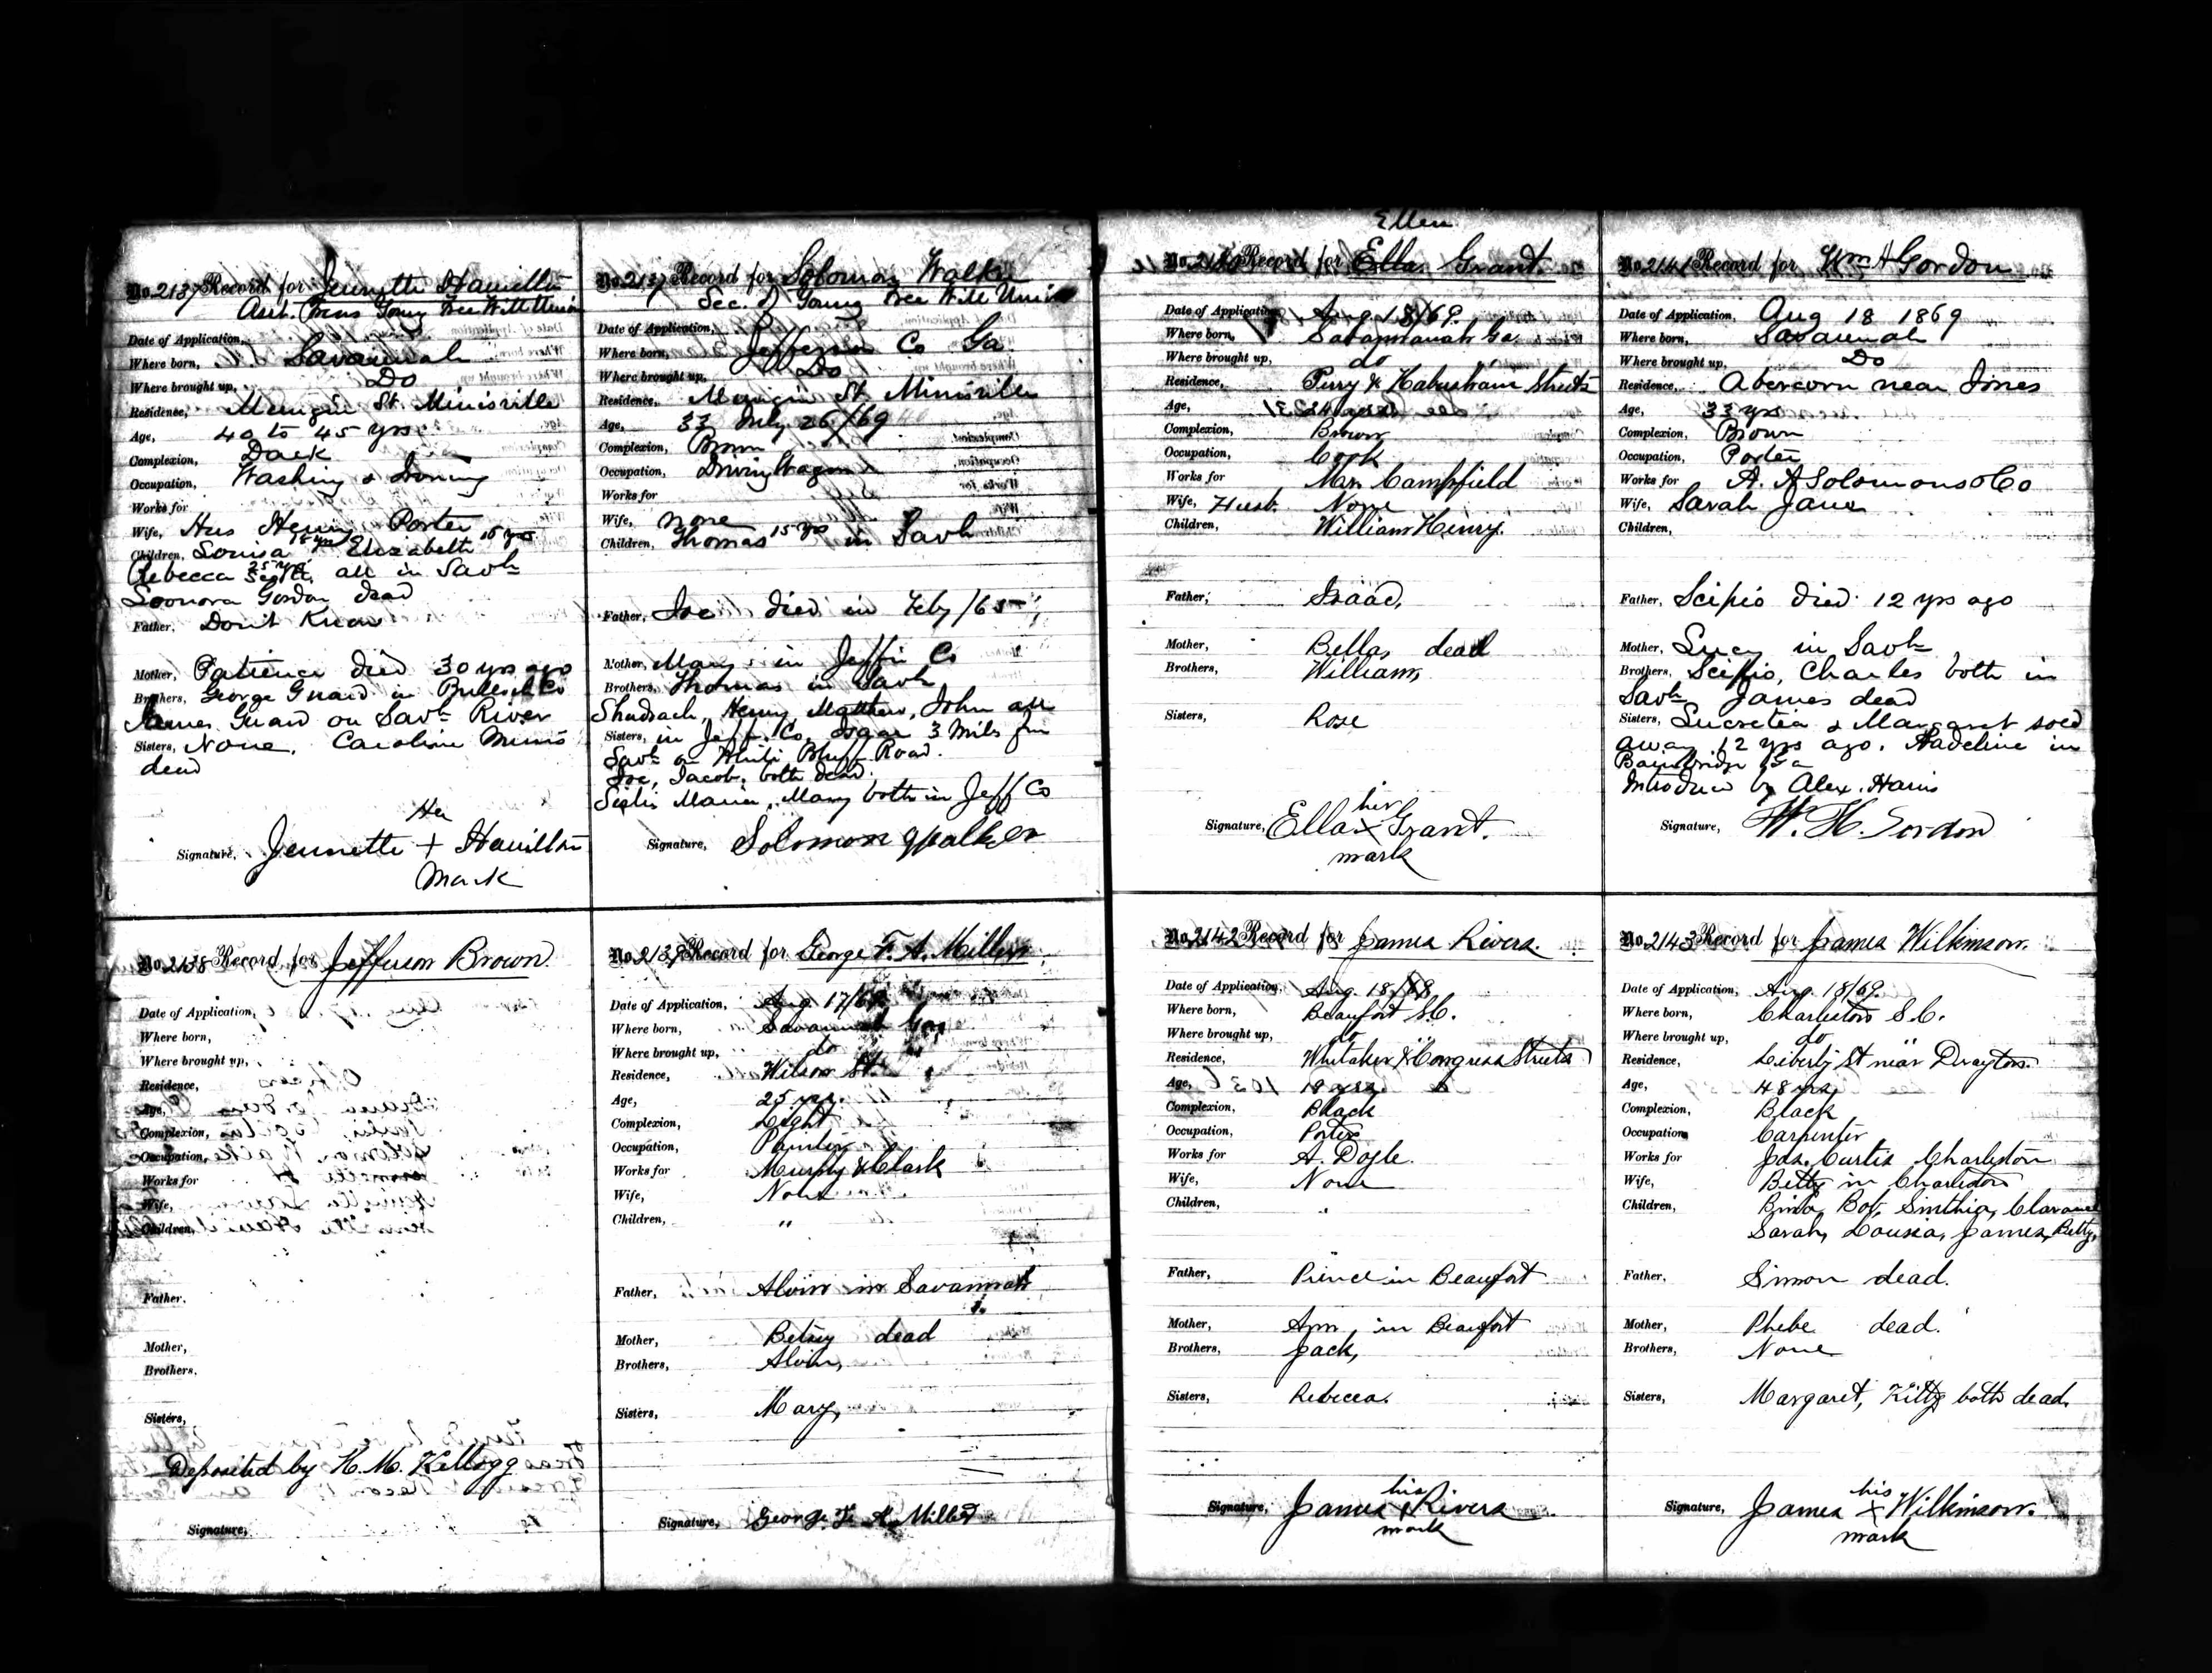 No. 2137 Record for Jennette Hamilton
Asst. Treas Young Free Will Union
Date of Application,
Where born, Savannah
Where brought up, Do
Residence, St. Minisville
Age, 40 to 45 yrs
Complexion, Dark
Occupation, Washing & Ironing
Works for
Wife, Hus Henry Porter
Children, Louisa 18 yrs Elizabeth 16 yrs
Rebecca 25 yrs all in Savh
Leonora Gordon dead
Father, Don't Know
Mother, Patience died 30 yrs ago
Brothers, George Guard in Co
James Guard on Savh River
Sisters, None, Caroline Mims
dead
Her
Signature, Jennette + Hamilton
Mark
No. 2137 Record for Solomon Walker
Sec. of Young Free Will Union
Date of Application,
Where born, Jefferson Co Ga
Where brought up, Do
Residence, St Minisville
Age, 33 July 26/69
Complexion, Brown
Occupation, Driving Wagon
Works for
Wife, none
Children, Thomas 15 yrs in Savh
Father, Joe died in Feby /65
Mother, Mary in Jeffn Co
Brothers, Thomas in Savh
Shadrach, Henry, Matthew, John all
Sisters, in Jeff. Co, Isaac 3 Mils fm
Savh on White Bluff Road.
Joe, Jacob, both dead.
Sister Maria, Mary both in Jeff Co
Signature, Solomon Walker
No. 2138 Record for Jefferson Brown.
Date of Application,
Where born,
Where brought up,
Residence,
Age,
Complexion,
Occupation,
Works for
Wife,
Children,
Father,
Mother,
Brothers,
Sisters,
Deposited by H. M. Kellogg
Signature,
No. 2139 Record for George F. A. Miller.
Date of Application, Aug. 17/69
Where born, Savannah Ga,
Where brought up, do
Residence, Wilson St.
Age, 25 yrs.
Complexion, Light
Occupation, Painter
Works for Murphy & Clark
Wife, None
Children, "
Father, Alvin in Savannah
Mother, Betsey dead
Brothers, Alvin,
Sisters, Mary,
Signature, George F. A. Miller
Ellen
No. 2140 Record for Ella Grant.
Date of Application, Aug. 18/69.
Where born, Savannah Ga.
Where brought up, do
Residence, Perry & Habersham Streets
Age, 24 years
Complexion, Brown
Occupation, Cook
Works for Mrs. Campfield
Wife, Husb. None
Children, William Henry.
Father, Isaac,
Mother, Bella, dead
Brothers, William,
Sisters, Rose
her
Signature, Ella x Grant.
mark
No. 2141 Record for Wm H Gordon
Date of Application, Aug 18 1869
Where born, Savannah
Where brought up, Do
Residence, Abercorn near Jones
Age, 33 yrs
Complexion, Brown
Occupation, Porter
Works for A. A Solomons & Co
Wife, Sarah Jane
Children,
Father, Scipio died 12 yrs ago
Mother, Lucy in Savh
Brothers, Scipio, Charles both in
Savh James dead
Sisters, Lucretia & Margaret sold
away 12 yrs ago. Madeline in
Bainbridge Ga
Introduced by Alex. Harris
Signature, W. H. Gordon
No. 2142 Record for James Rivers.
Date of Application, Aug. 18/69
Where born, Beaufort S.C.
Where brought up, do
Residence, Whitaker & Congress Streets
Age, 19 yrs
Complexion, Black
Occupation, Porter
Works for A. Doyle.
Wife, None
Children, "
Father, Prince in Beaufort
Mother, Ann, in Beaufort
Brothers, Jack,
Sisters, Rebecca.
his
Signature, James x Rivers
mark
No. 2143 Record for James Wilkinson.
Date of Application, Aug. 18/69.
Where born, Charleston S.C.
Where brought up, do
Residence, Liberty St near Drayton.
Age, 48 yrs,
Complexion, Black
Occupation, Carpenter
Works for Jas. Curtis Charleston
Wife, Betty in Charleston
Children, Bob, Sinthia, Clarance
Sarah, Louisa, James, Betty,
Father, Simon dead.
Mother, Phebe dead.
Brothers, None
Sisters, Margaret, Kitty both dead.
his
Signature, James x Wilkinson.
mark